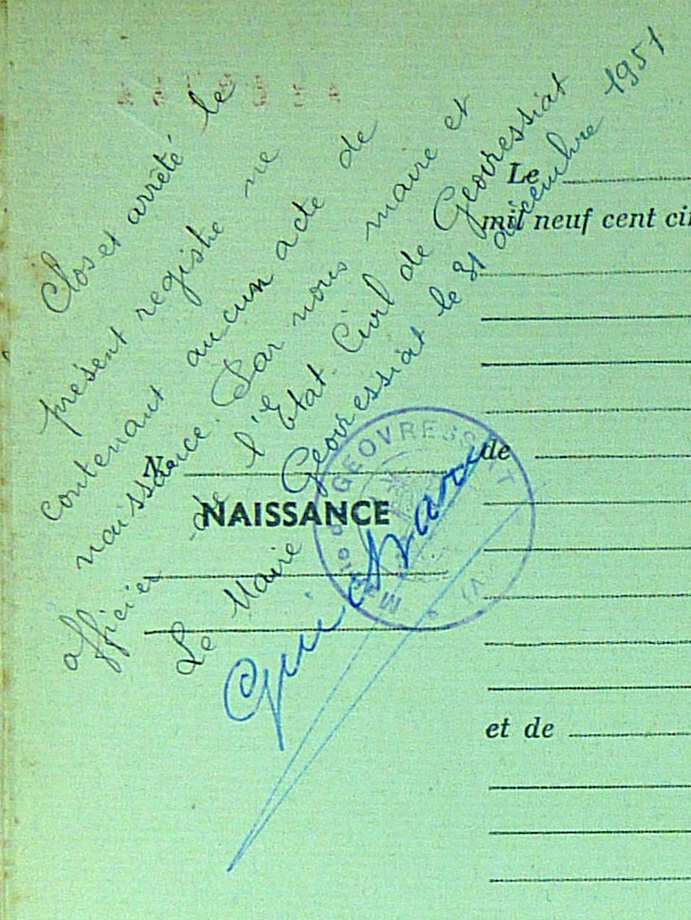 Clos et arrêté le
présent registre ne
contenant aucun acte de
naissance. Par nous maire et
officier de l'Etat-Civil de Geovressiat
Geovressiat le 31 décembre 1951
Le Maire
Le
mil neuf cent ci
N
NAISSANCE
de
et de
MAIRIE DE GEOVRESSIAT